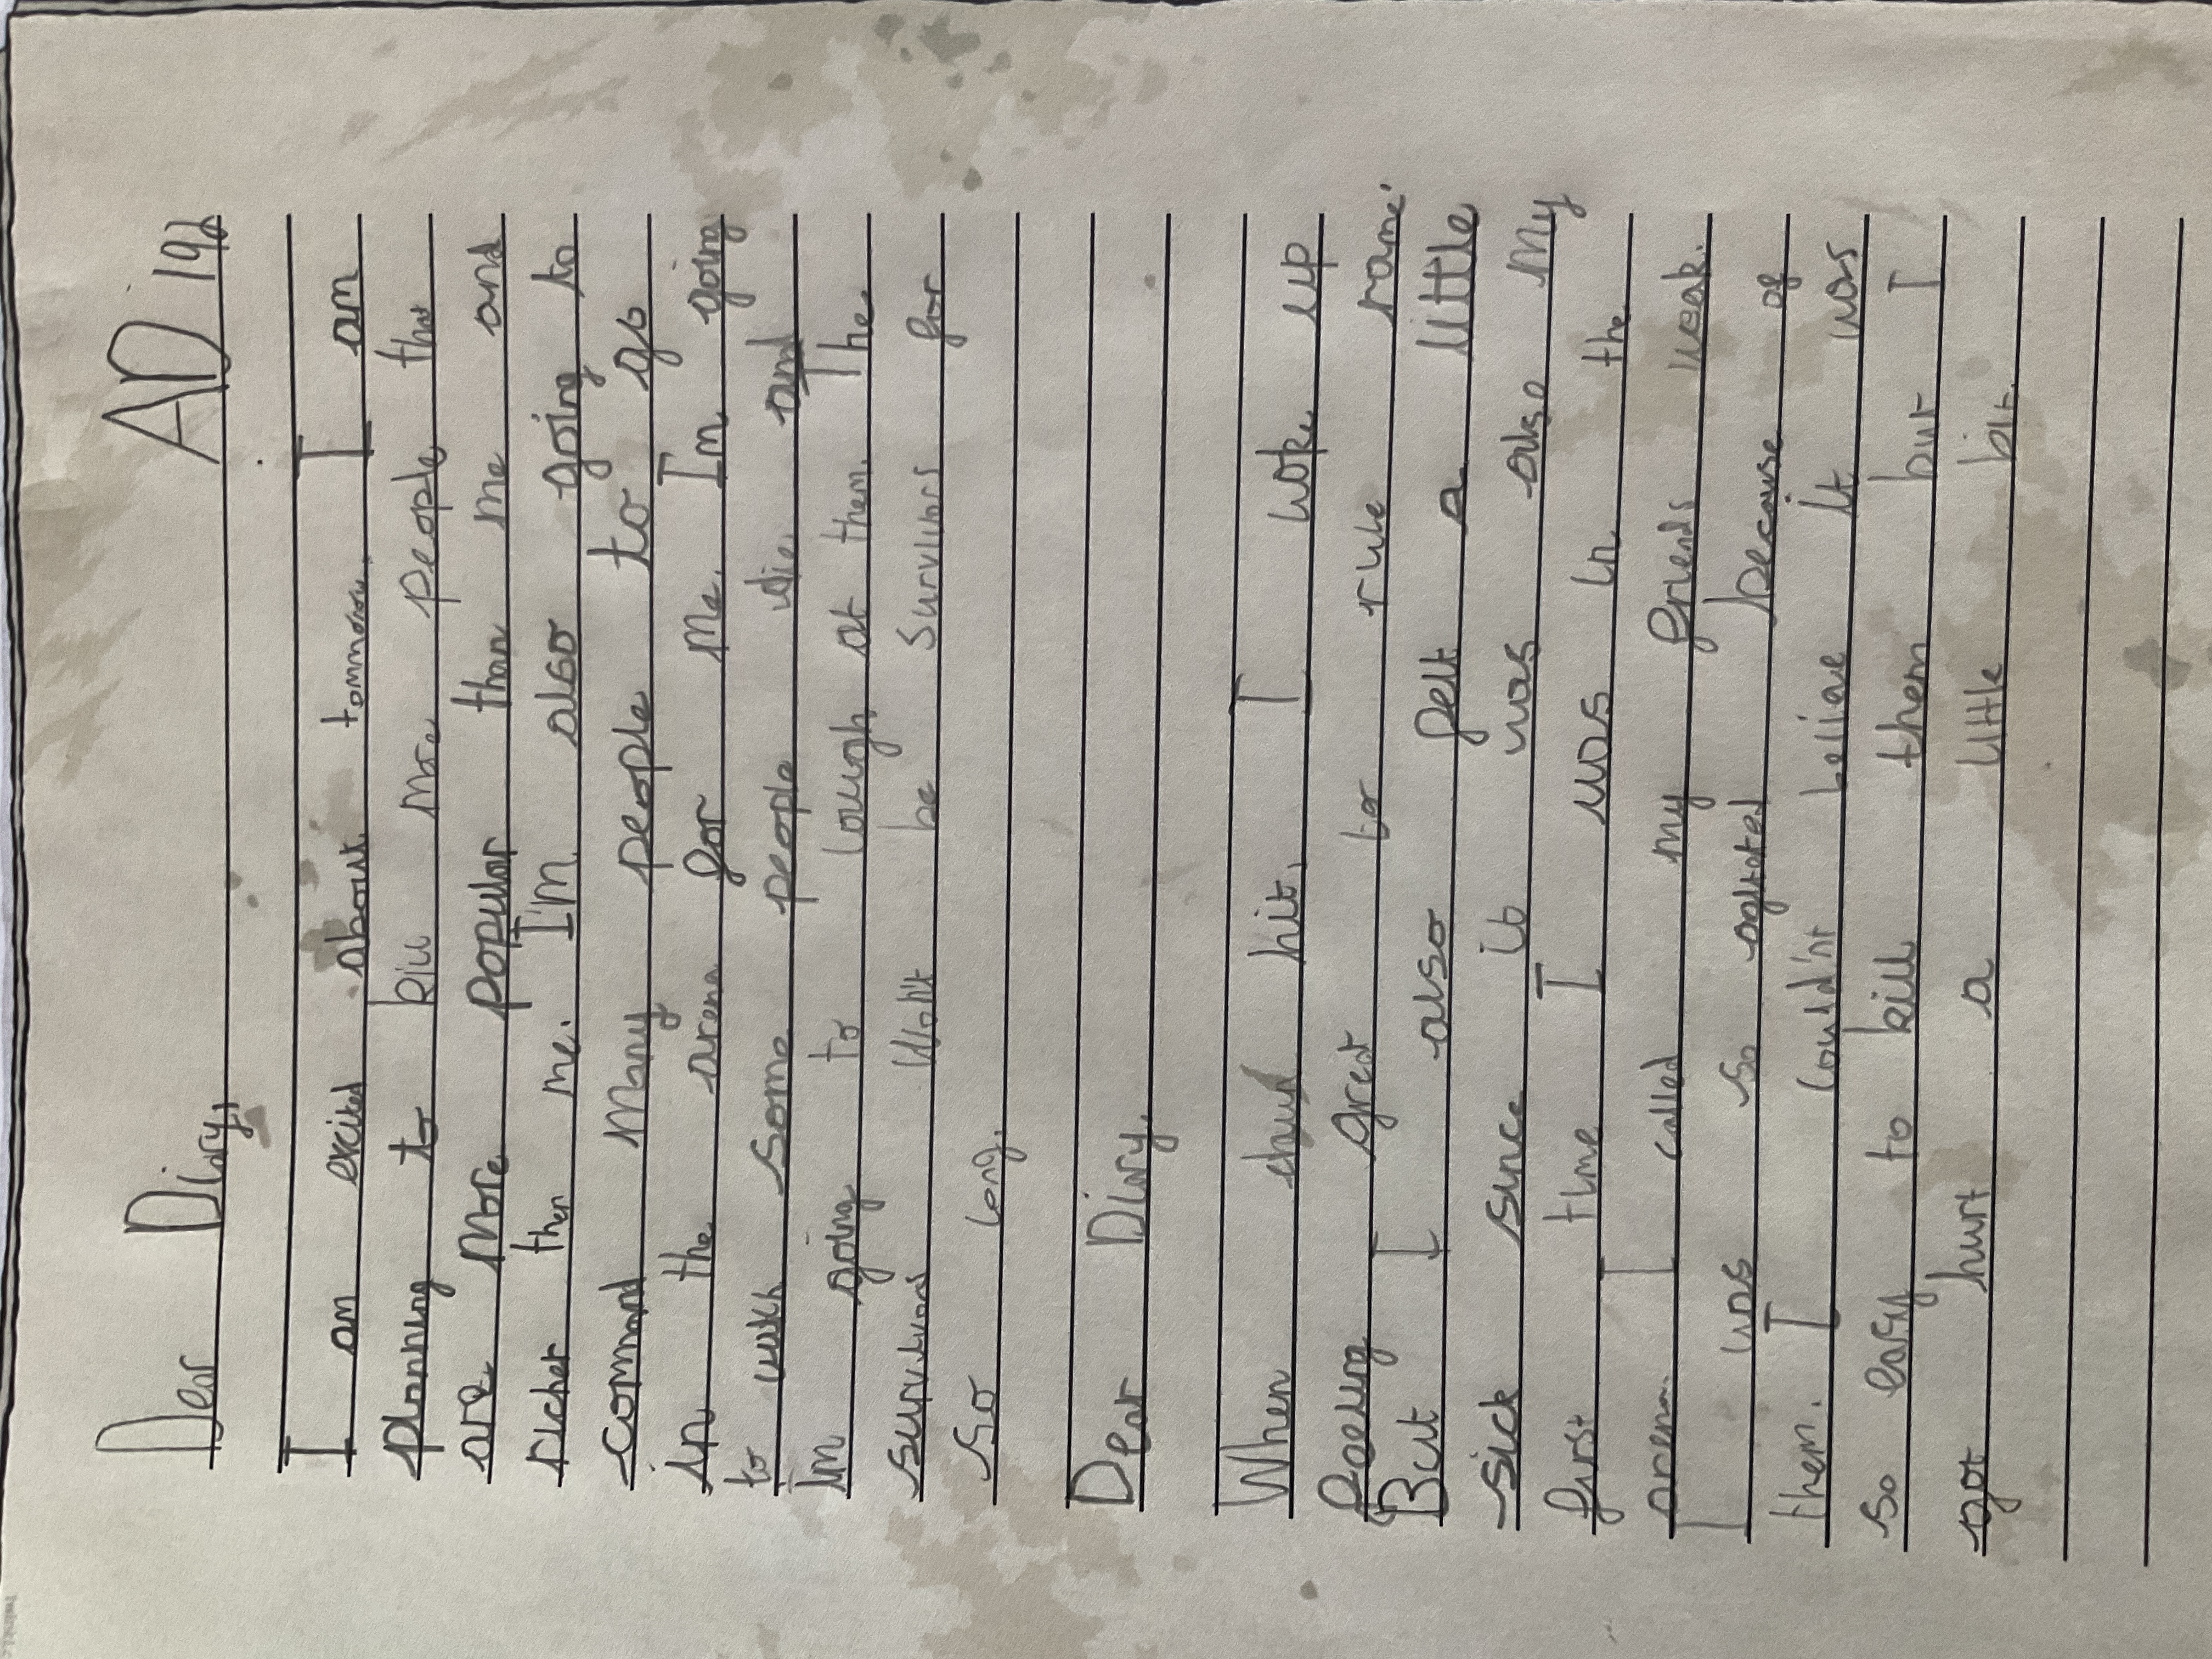 Dear Diary, AD 192
I am excited about tommorow. I am
planning to kill more people that
are more popular than me and
richer then me. I'm also going to
command many people to go
in the arena for me. Im going
to wich some people die and
im going to lough at them. The
survivors won't be survivors for
so long.
Dear Diary,
When hit, I woke up
great to rule rome.
But I also felt a little
sick since it was also my
first time I was in the
arena. I called my friends weak.
I was so agitated because of
them. I could'nt believe it was
so easy to kill them but I
got hurt a little bit.